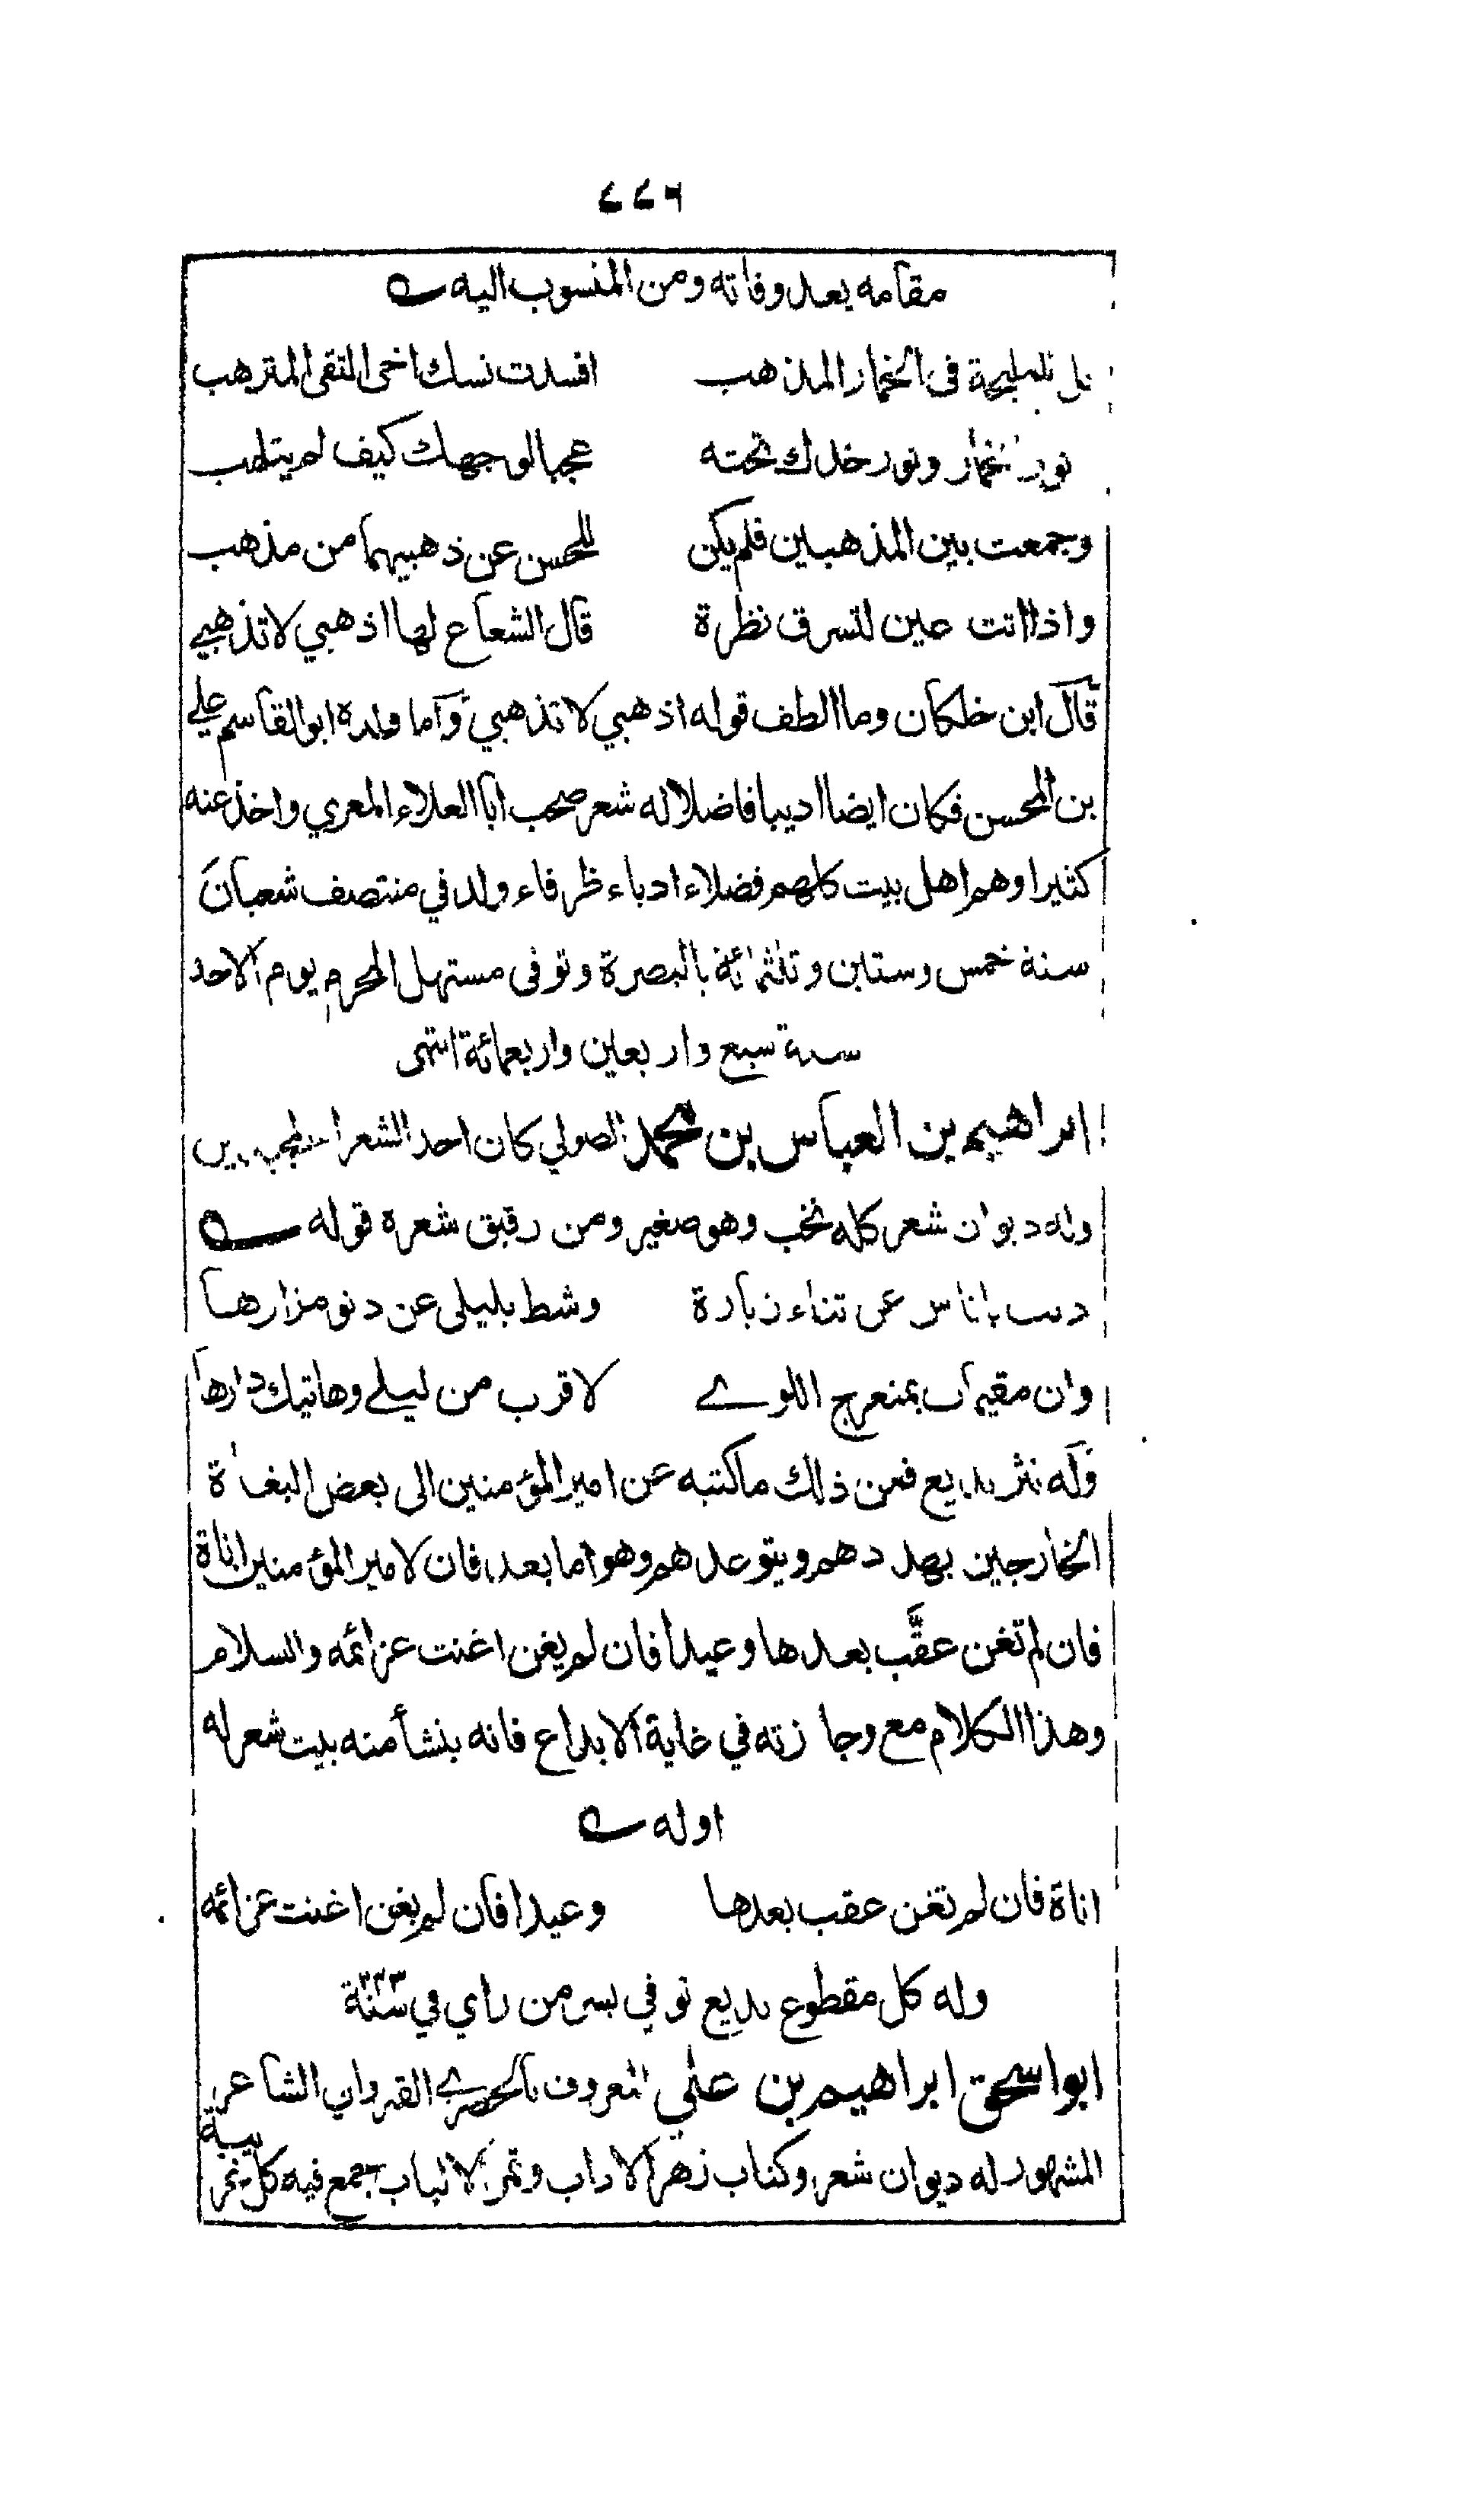 ٤٤٦
مقامه بعد وفاته ومن المنسوب اليه
قل للمليحة في الخمار المذهب افسدت نسك اخي التقى المترهب
نور الخمار ونور خدك تحته عجبا لوجهك كيف لم يتلهب
وجمعت بين المذهبين فلم يكن للحسن عن ذهبيهما من مذهب
واذا اتت عين لتسرق نظرة قال الشعاع لها اذهبي لا تذهبي
قال ابن خلكان وما الطف قوله اذهبي لا تذهبي وآما ولده ابوالقاسم علي
بن المحسن فكان ايضا اديبا فاضلا له شعر صحب ابا العلاء المعري واخذ عنه
كثيرا وهم اهل بيت كلهم فضلاء ادباء ظرفاء ولد في منتصف شعبان
سنة خمس وستين وثلثمائة بالبصرة وتوفى مستهل المحرم يوم الاحد
سنة سبع واربعين واربعمائة انتهى
ابراهيم بن العباس بن محمد الصولي كان احد الشعراء المجيدين
وله ديوان شعر كله نخب وهو صغير ومن رقيق شعره قوله
دنت باناس عن تناء زيارة وشط بليلى عن دنو مزارها
وان مقيمات بمنعرج اللوى لاقرب من ليلى وهاتيك دارها
وله نثر بديع فمن ذلك ما كتبه عن امير المؤمنين الى بعض البغاة
الخارجين يهددهم ويتوعدهم وهو اما بعد فان لامير المؤمنين اناة
فان لم تغن عقّب بعدها وعيدا فان لم يغن اغنت عزائمه والسلام
وهذا الكلام مع وجازته في غاية الابداع فانه ينشأ منه بيت شعر له
اوله
اناة فان لم تغن عقب بعدها وعيدا فان لم يغن اغنت عزائمه
وله كل مقطوع بديع توفي بسر من راي في سنة
ابو اسحق ابراهيم بن علي المعروف بالحصري القيرواني الشاعر
المشهور له ديوان شعر وكتاب زهر الاداب وثمر الالباب جمع فيه كل غريبة